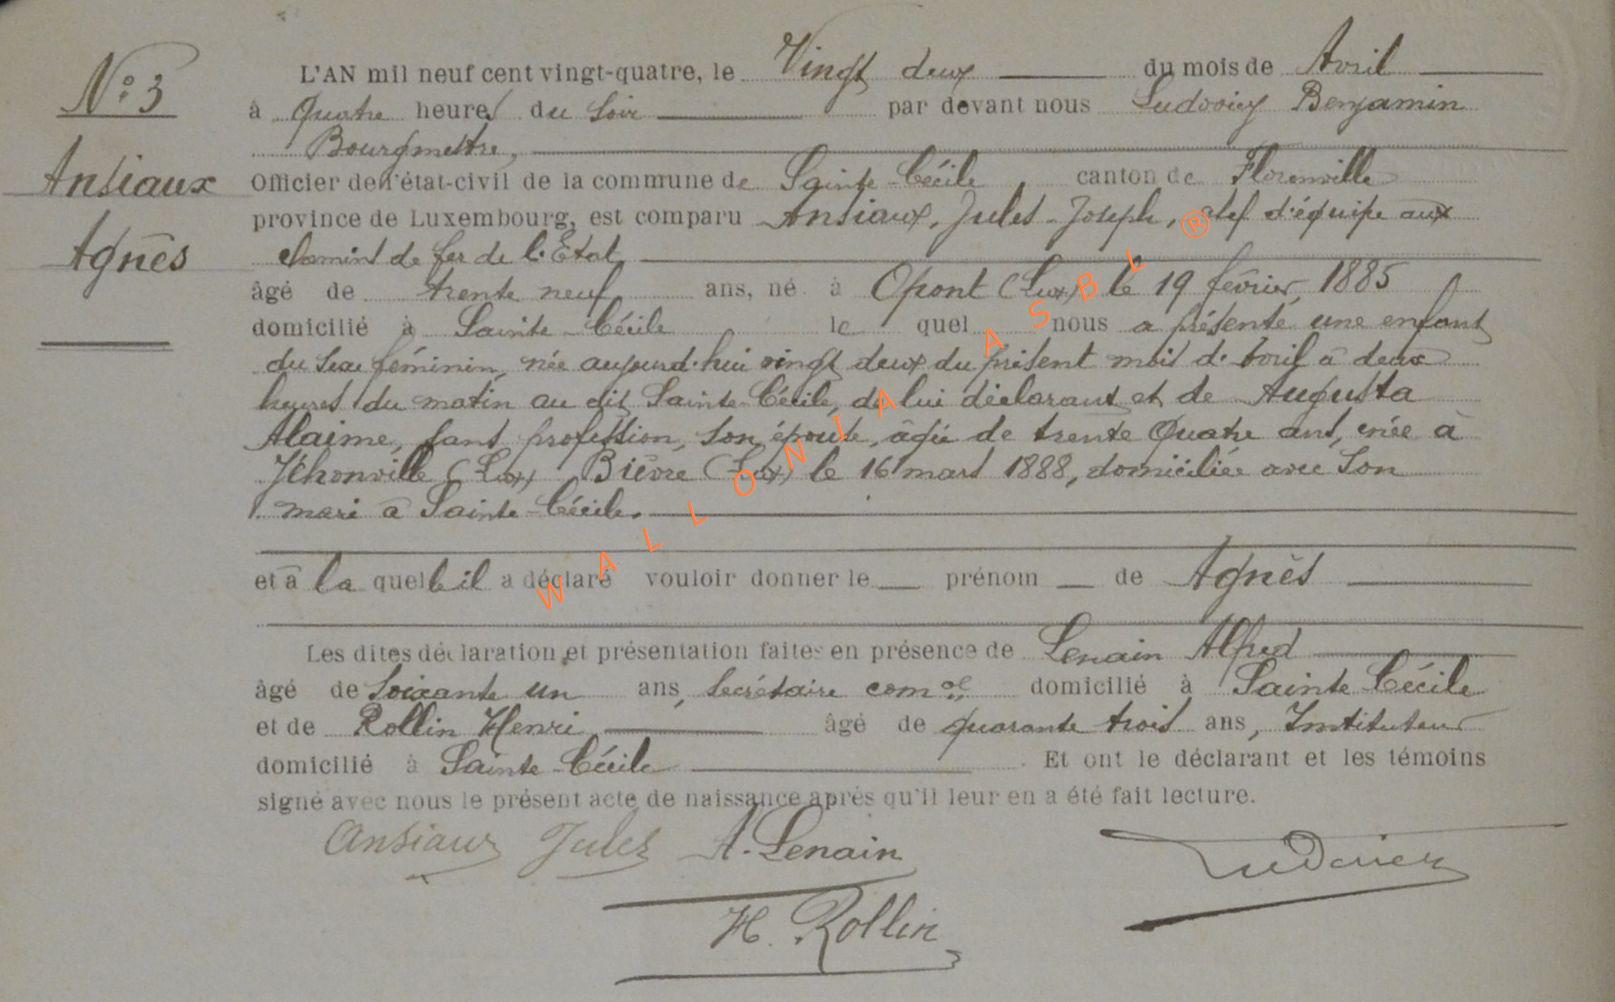 N° 3
Ansiaux
Agnès
L'AN mil neuf cent vingt-quatre, le Vingt deux du mois de Avril
à Quatre heures du soir par devant nous Ludovicy Benjamin
Bourgmestre,
Officier de l'état-civil de la commune de Sainte-Cécile canton de Florenville
province de Luxembourg, est comparu Ansiaux, Jules-Joseph, chef d'équipe aux
chemins de fer de l'Etat
âgé de trente neuf ans, né à Opont (Lux) le 19 février 1885
domicilié à Sainte-Cécile le quel nous a présenté une enfant
du sexe féminin, née aujourd'hui vingt deux du présent mois d'Avril à deux
heures du matin au dit Sainte-Cécile, de lui déclarant et de Augusta
Alaime, sans profession, son épouse, âgée de trente Quatre ans, née à
Jéhonville (Lux) Bièvre (Lux) le 16 mars 1888, domiciliée avec son
mari à Sainte-Cécile.
et à la quelle il a déclaré vouloir donner le prénom de Agnès
Les dites déclaration et présentation faites en présence de Lenain Alfred
âgé de soixante un ans, secrétaire com al domicilié à Sainte Cécile
et de Rollin Henri âgé de quarante trois ans, Instituteur
domicilié à Sainte-Cécile. Et ont le déclarant et les témoins
signé avec nous le présent acte de naissance après qu'il leur en a été fait lecture.
Ansiaux Jules A. Lenain Ludovicy
H. Rollin
WALLONIA ASBL ®